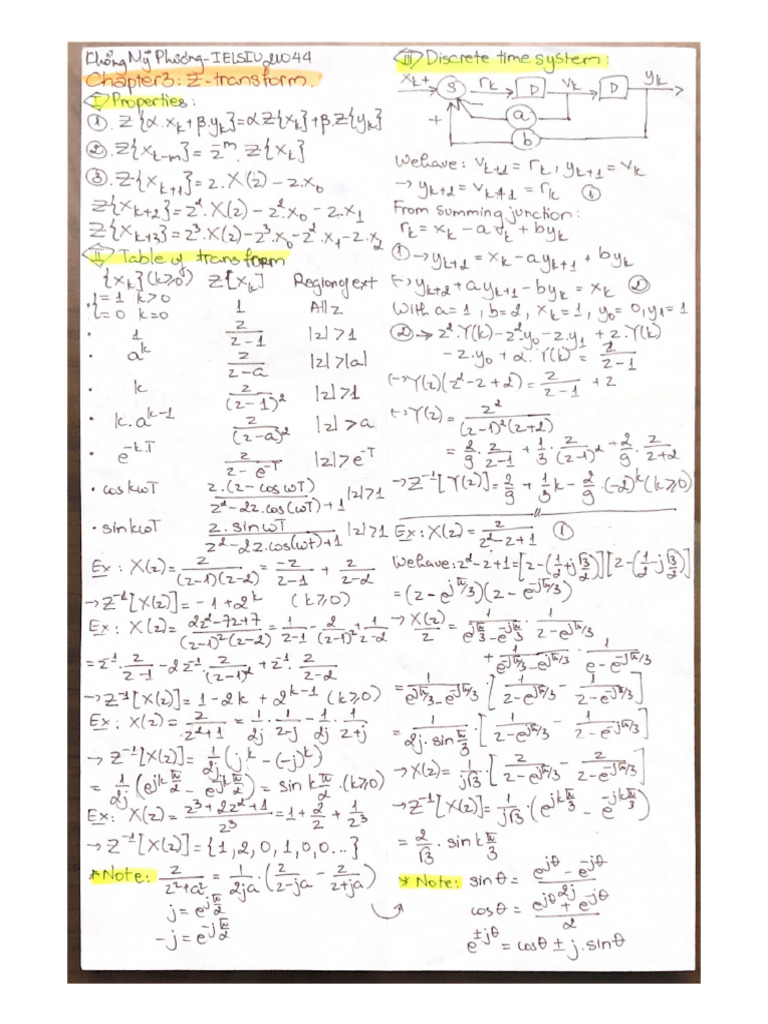 Khổng Mỹ Phương-IELSIU21044
Chapter3: Z-transform.
I Properties:
① Z{α.x_k+β.y_k}=αZ{x_k}+β.Z{y_k}
② Z{x_{k-m}}=z^{-m}.Z{x_k}
③ Z{x_{k+1}}=z.X(z)-z.x_0
Z{x_{k+2}}=z^2.X(z)-z^2.x_0-z.x_1
Z{x_{k+3}}=z^3.X(z)-z^3.x_0-z^2.x_1-z.x_2
II Table of transform
{x_k}(k≥0) Z[x_k] Region of ext
{=1 k>0 =0 k=0 1 All z
• 1 z/(z-1) |z|>1
• a^k z/(z-a) |z|>|a|
• k z/(z-1)^2 |z|>1
• k.a^{k-1} z/(z-a)^2 |z|>a
• e^{-kT} z/(z-e^{-T}) |z|>e^{-T}
• coskωT z.(z-cosωT)/(z^2-2z.cos(ωT)+1) |z|>1
• sinkωT z.sinωT/(z^2-2z.cos(ωt)+1) |z|>1
Ex: X(z)=z/((z-1)(z-2))=-z/(z-1)+z/(z-2)
→Z^{-1}[X(z)]=-1+2^k (k≥0)
Ex: X(z)=(2z^2-7z+7)/((z-1)^2(z-2))=1/(z-1)-2/(z-1)^2+1/(z-2)
=z^{-1}.z/(z-1)-2z^{-1}.z/(z-1)^2+z^{-1}.z/(z-2)
→Z^{-1}[X(z)]=1-2k+2^{k-1} (k≥0)
Ex: X(z)=z/(z^2+1)=1/2j.z/(z-j)-1/2j.z/(z+j)
→Z^{-1}[X(z)]=1/2j(j^k-(-j)^k)
=1/2j(e^{jkπ/2}-e^{jkπ/2})=sin kπ/2.(k≥0)
Ex: X(z)=(z^3+2z^2+1)/z^3=1+2/z+1/z^3
→Z^{-1}[X(z)]={1,2,0,1,0,0...}
*Note: z/(z^2+a^2)=1/2ja.(z/(z-ja)-z/(z+ja))
j=e^{jπ/2}
-j=e^{-jπ/2}
III Discrete time system:
x_k + S r_k D v_k D y_k
- a
+ b
We have: v_{k+1}=r_k, y_{k+1}=v_k
→y_{k+2}=v_{k+1}=r_k ①
From summing junction:
r_k=x_k-av_k+by_k
①→y_{k+2}=x_k-ay_{k+1}+by_k
↔y_{k+2}+ay_{k+1}-by_k=x_k ②
With a=1, b=2, x_k=1, y_0=0,y_1=1
②→z^2.Y(k)-z^2y_0-z.y_1+z.Y(k)
-z.y_0+2.Y(k)=z/(z-1)
↔Y(z)(z^2-z+2)=z/(z-1)+z
↔Y(z)=z^2/((z-1)^2(z+2))
=2/9.z/(z-1)+1/3.z/(z-1)^2+2/9.z/(z+2)
→Z^{-1}[Y(z)]=2/9+1/3k-2/9.(-2)^k(k≥0)
Ex: X(z)=z/(z^2-z+1) ①
We have: z^2-z+1=[z-(1/2+j√3/2)][z-(1/2-j√3/2)]
=(z-e^{jπ/3})(z-e^{-jπ/3})
→X(z)/z=1/(e^{jπ/3}-e^{-jπ/3}).1/(z-e^{jπ/3})
+1/(e^{jπ/3}-e^{jπ/3}).1/(e-e^{-jπ/3})
=1/(e^{jπ/3}-e^{-jπ/3}).[1/(z-e^{jπ/3})-1/(z-e^{-jπ/3})]
=1/(2j.sinπ/3).[1/(z-e^{jπ/3})-1/(z-e^{-jπ/3})]
→X(z)=1/(j√3).[z/(z-e^{jπ/3})-z/(z-e^{-jπ/3})]
→Z^{-1}[X(z)]=1/(j√3).(e^{jkπ/3}-e^{-jkπ/3})
=2/√3.sin kπ/3
*Note: sinθ=(e^{jθ}-e^{-jθ})/2j
cosθ=(e^{jθ}+e^{-jθ})/2
e^{±jθ}=cosθ±j.sinθ